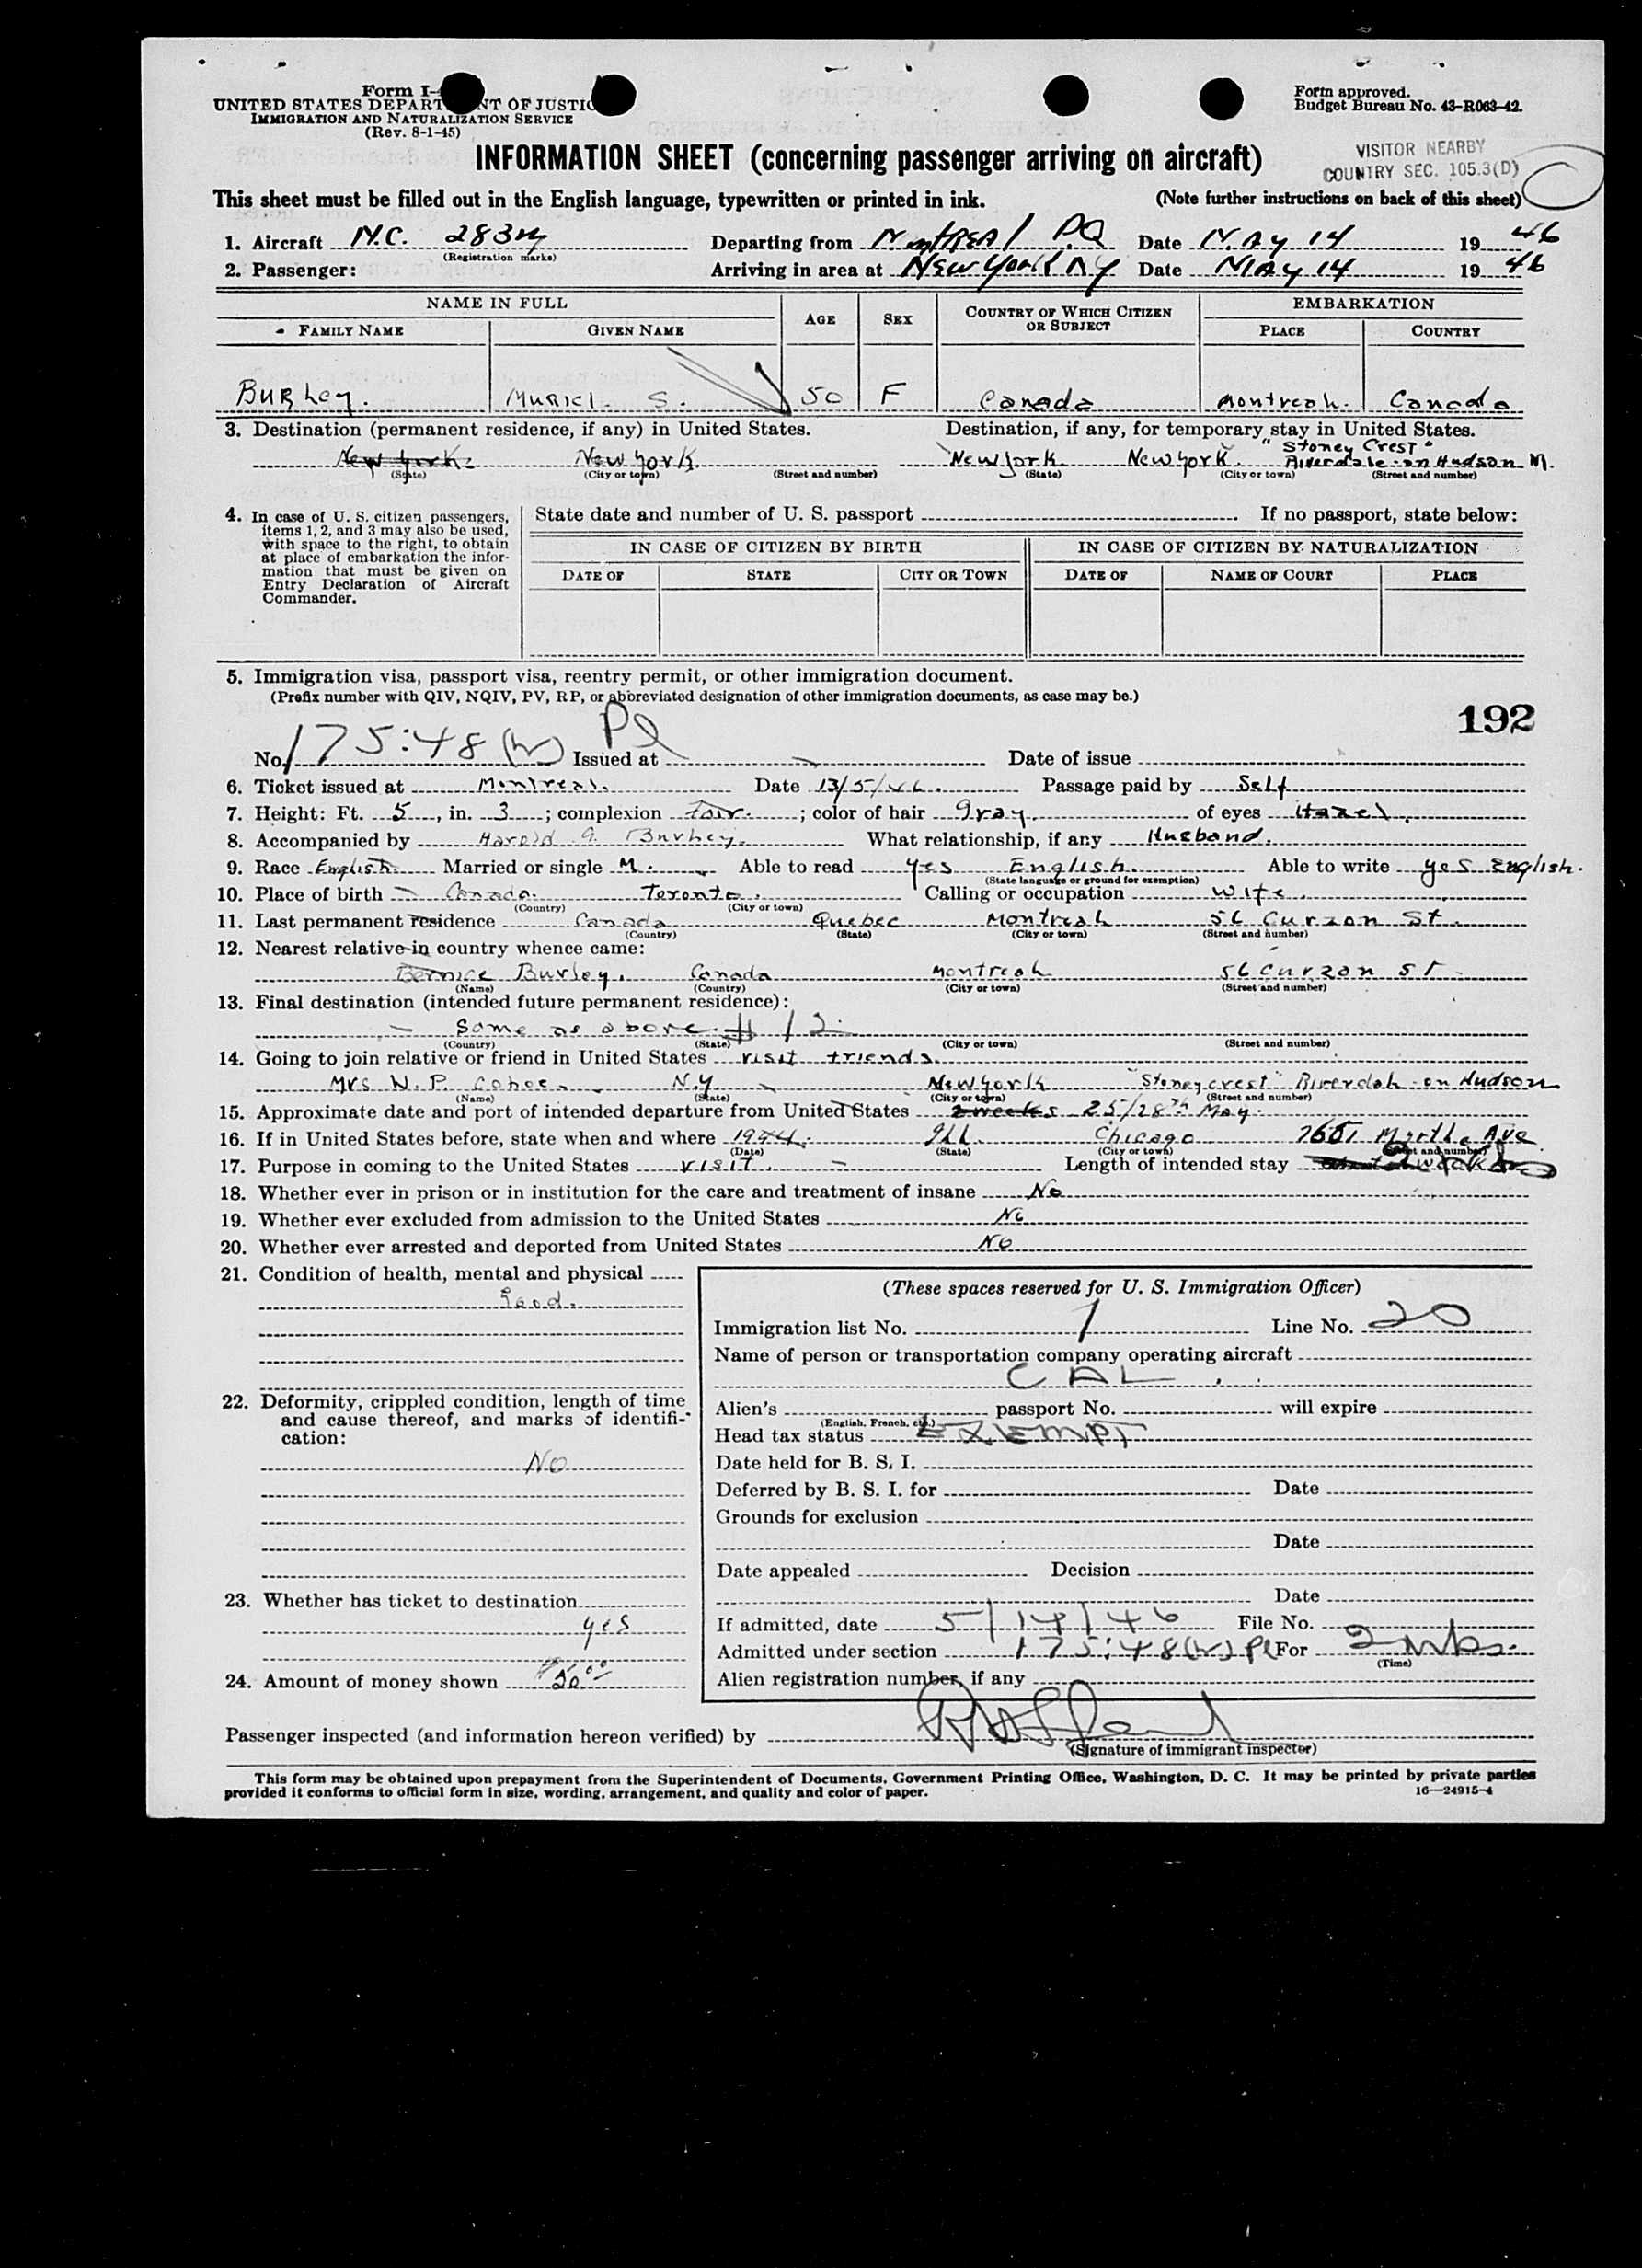 Form I-
UNITED STATES DEPART NT OF JUSTIC
IMMIGRATION AND NATURALIZATION SERVICE
(Rev. 8-1-45)
Form approved.
Budget Bureau No. 43-R063-42.
INFORMATION SHEET (concerning passenger arriving on aircraft)
VISITOR NEARBY
COUNTRY SEC. 105.3(D)
This sheet must be filled out in the English language, typewritten or printed in ink. (Note further instructions on back of this sheet)
1. Aircraft N.C. 283 Departing from MontREAl P.Q Date MAy 14 19 46
(Registration marks)
2. Passenger: Arriving in area at New York NY Date MAy 14 19 46
NAME IN FULL AGE SEX COUNTRY OF WHICH CITIZEN OR SUBJECT EMBARKATION
FAMILY NAME GIVEN NAME PLACE COUNTRY
Burley. Muriel S. 50 F Canada Montreal. Canada
3. Destination (permanent residence, if any) in United States. Destination, if any, for temporary stay in United States.
"Stoney Crest"
New York New York New York New York. Riverdale-on Hudson
(State) (City or town) (Street and number) (State) (City or town) (Street and number)
4. In case of U. S. citizen passengers, items 1, 2, and 3 may also be used, with space to the right, to obtain at place of embarkation the information that must be given on Entry Declaration of Aircraft Commander.
State date and number of U. S. passport If no passport, state below:
IN CASE OF CITIZEN BY BIRTH IN CASE OF CITIZEN BY NATURALIZATION
DATE OF STATE CITY OR TOWN DATE OF NAME OF COURT PLACE
5. Immigration visa, passport visa, reentry permit, or other immigration document.
(Prefix number with QIV, NQIV, PV, RP, or abbreviated designation of other immigration documents, as case may be.)
192
No. 175:48(w) Pl Issued at Date of issue
6. Ticket issued at Montreal. Date 13/5/46. Passage paid by Self
7. Height: Ft. 5, in. 3; complexion fair.; color of hair gray. of eyes Hazel.
8. Accompanied by Harold G. Burley. What relationship, if any Husband.
9. Race English Married or single M. Able to read yes English. Able to write yes English.
(State language or ground for exemption)
10. Place of birth Canada. Toronto. Calling or occupation wife.
(Country) (City or town)
11. Last permanent residence Canada Quebec Montreal 56 Curzon St.
(Country) (State) (City or town) (Street and number)
12. Nearest relative in country whence came:
Bernice Burley. Canada Montreal 56 Curzon St.
(Name) (Country) (City or town) (Street and number)
13. Final destination (intended future permanent residence):
Same as above. # 12
(Country) (State) (City or town) (Street and number)
14. Going to join relative or friend in United States visit friends
Mrs W. P. Cohoe N.Y New York "Stoneycrest" Riverdale-on Hudson
(Name) (State) (City or town) (Street and number)
15. Approximate date and port of intended departure from United States 2 weeks 25/28th May.
16. If in United States before, state when and where 1944. Ill. Chicago Myrtle Ave
(Date) (State) (City or town) (Street and number)
17. Purpose in coming to the United States visit. Length of intended stay
18. Whether ever in prison or in institution for the care and treatment of insane No
19. Whether ever excluded from admission to the United States No
20. Whether ever arrested and deported from United States No
21. Condition of health, mental and physical
Good.
22. Deformity, crippled condition, length of time and cause thereof, and marks of identification:
No
23. Whether has ticket to destination
yes
24. Amount of money shown
(These spaces reserved for U. S. Immigration Officer)
Immigration list No. 1 Line No. 20
Name of person or transportation company operating aircraft
CAL
Alien's passport No. will expire
(English, French, etc.)
Head tax status EXEMPT
Date held for B. S. I.
Deferred by B. S. I. for Date
Grounds for exclusion
Date
Date appealed Decision
Date
If admitted, date 5/14/46 File No.
Admitted under section 175:48(w) Pl For 2 wks.
(Time)
Alien registration number, if any
Passenger inspected (and information hereon verified) by
(Signature of immigrant inspector)
This form may be obtained upon prepayment from the Superintendent of Documents, Government Printing Office, Washington, D. C. It may be printed by private parties
provided it conforms to official form in size, wording, arrangement, and quality and color of paper. 16—24915-4